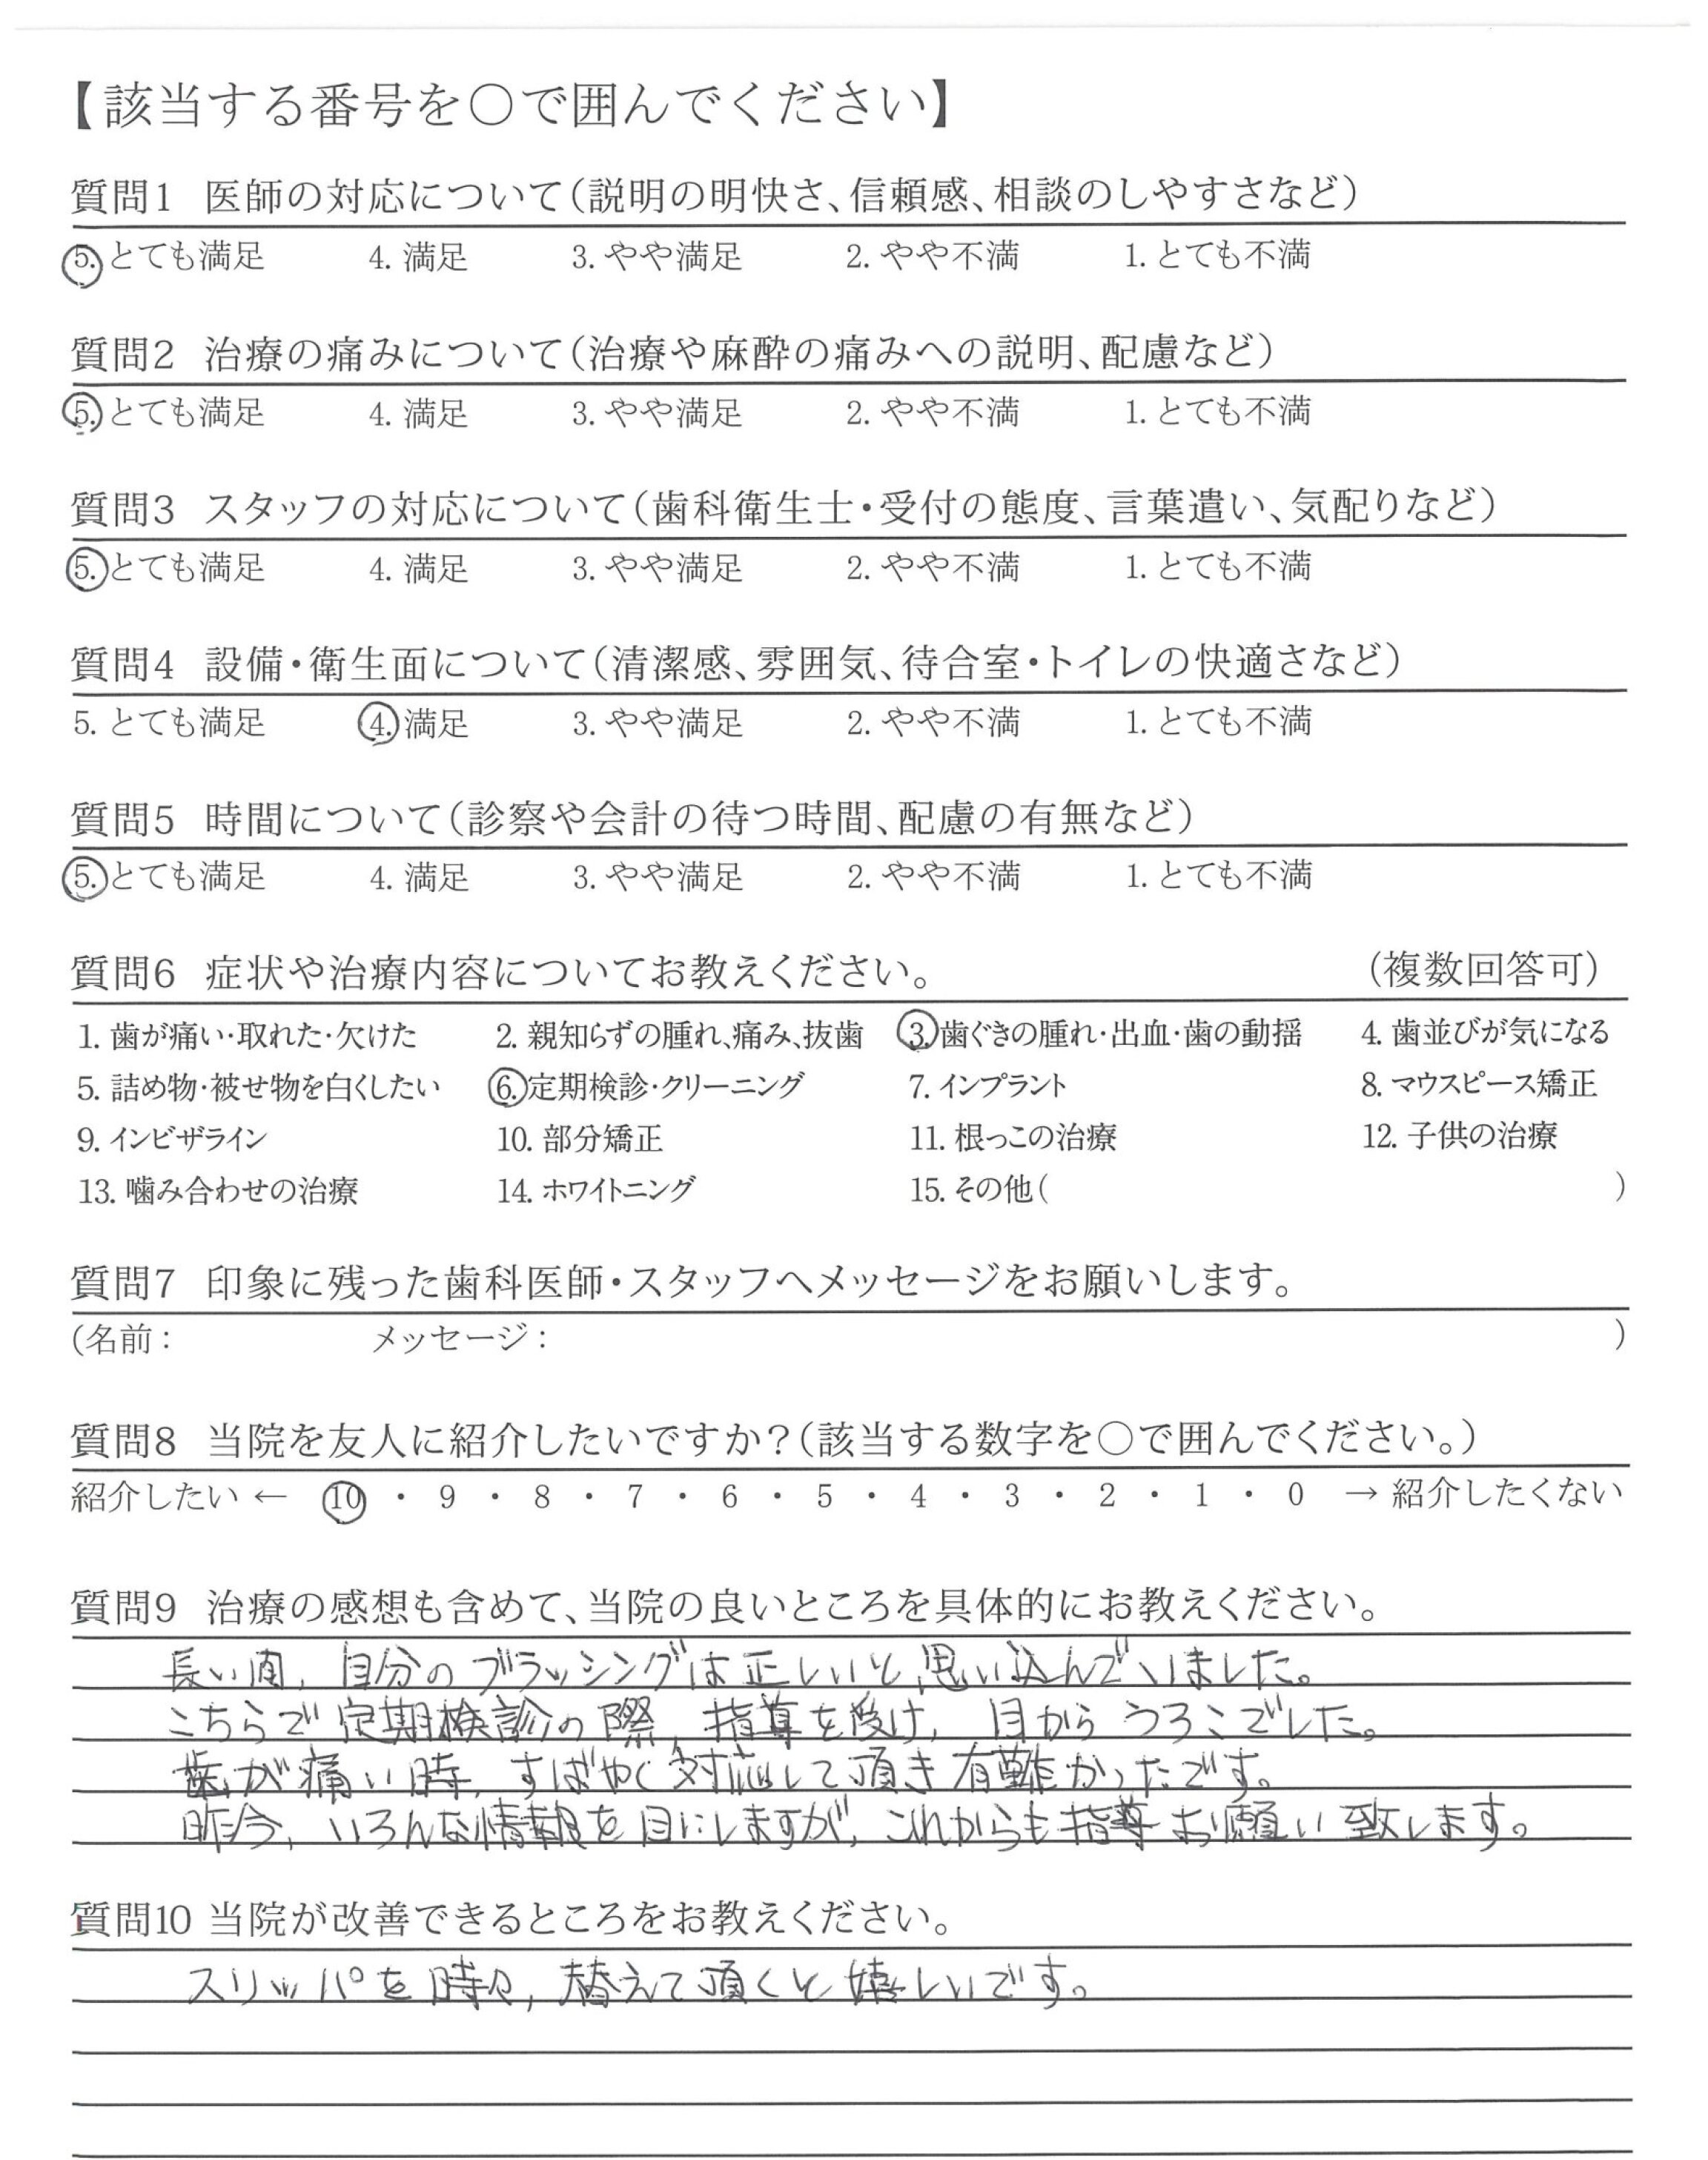 【該当する番号を○で囲んでください】
質問1 医師の対応について（説明の明快さ、信頼感、相談のしやすさなど）
5. とても満足 4. 満足 3. やや満足 2. やや不満 1. とても不満
質問2 治療の痛みについて（治療や麻酔の痛みへの説明、配慮など）
5. とても満足 4. 満足 3. やや満足 2. やや不満 1. とても不満
質問3 スタッフの対応について（歯科衛生士・受付の態度、言葉遣い、気配りなど）
5. とても満足 4. 満足 3. やや満足 2. やや不満 1. とても不満
質問4 設備・衛生面について（清潔感、雰囲気、待合室・トイレの快適さなど）
5. とても満足 4. 満足 3. やや満足 2. やや不満 1. とても不満
質問5 時間について（診察や会計の待つ時間、配慮の有無など）
5. とても満足 4. 満足 3. やや満足 2. やや不満 1. とても不満
質問6 症状や治療内容についてお教えください。 （複数回答可）
1. 歯が痛い・取れた・欠けた 2. 親知らずの腫れ、痛み、抜歯 3. 歯ぐきの腫れ・出血・歯の動揺 4. 歯並びが気になる
5. 詰め物・被せ物を白くしたい 6. 定期検診・クリーニング 7. インプラント 8. マウスピース矯正
9. インビザライン 10. 部分矯正 11. 根っこの治療 12. 子供の治療
13. 噛み合わせの治療 14. ホワイトニング 15. その他（ ）
質問7 印象に残った歯科医師・スタッフへメッセージをお願いします。
（名前： メッセージ： ）
質問8 当院を友人に紹介したいですか？（該当する数字を○で囲んでください。）
紹介したい ← 10 ・ 9 ・ 8 ・ 7 ・ 6 ・ 5 ・ 4 ・ 3 ・ 2 ・ 1 ・ 0 → 紹介したくない
質問9 治療の感想も含めて、当院の良いところを具体的にお教えください。
長い間、自分のブラッシングは正しいと思い込んでいました。
こちらで定期検診の際、指導を受け、目からうろこでした。
歯が痛い時、すばやく対応して頂き有難かったです。
昨今、いろんな情報を目にしますが、これからも指導お願い致します。
質問10 当院が改善できるところをお教えください。
スリッパを時々、替えて頂くと嬉しいです。